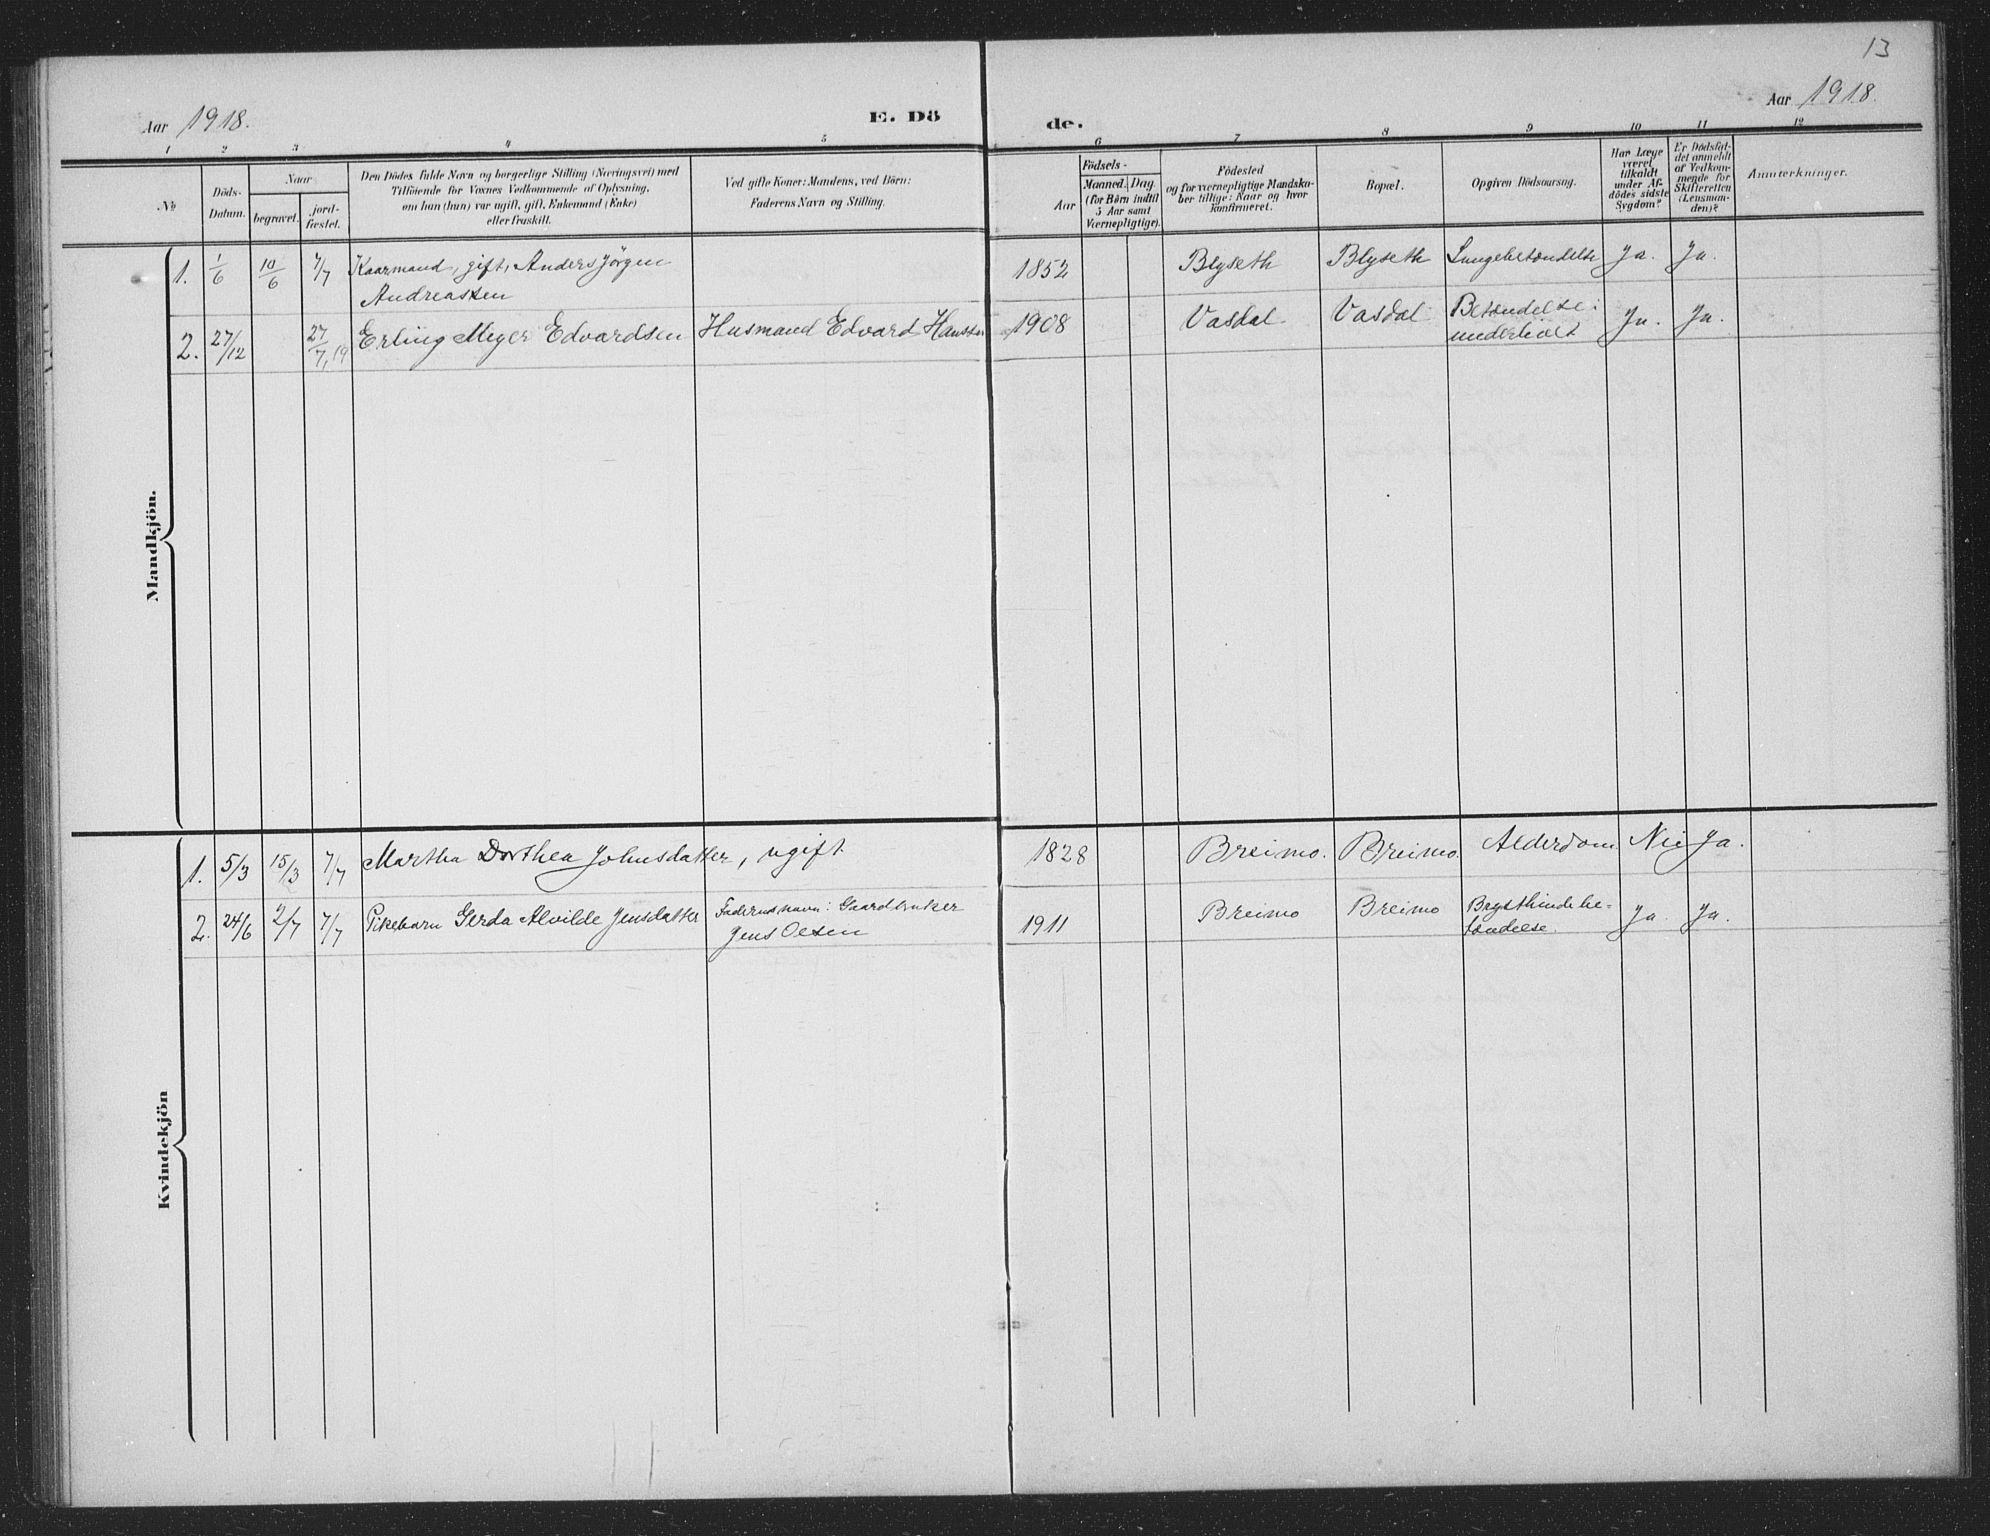 13
Aar 1918.
E. Dö
de.
Aar 1918.
1 2 3 4 5 6 7 8 9 10 11 12
No
Döds-
Datum.
Naar
begravet.
jord-
fæstet.
Den Dödes fulde Navn og borgerlige Stilling (Næringsvei) med
Tilföiende for Voxnes Vedkommende af Oplysning,
om han (hun) var ugift, gift, Enkemand (Enke)
eller fraskilt.
Ved gifte Koner: Mandens, ved Börn:
Faderens Navn og Stilling.
Födsels-
Aar
Maaned. Dag
(for Börn indtil
5 Aar samt
Værnepligtige).
Födested
og for værnepligtige Mandska-
ber tillige: Naar og hvor
konfirmeret.
Bopæl.
Opgiven Dödsaarsag.
Har Læge
været
tilkaldt
under Af-
dödes sidste
Sygdom?
Er Dödsfal-
det anmeldt
af Vedkom-
mende for
Skifteretten
(Lensman-
den)?
Anmærkninger.
Mandkjön.
1. 1/6 10/6 7/7 Kaarmand, gift, Anders Jörgen
Andreassen
1852 Blyseth Blyseth Lungebetændelse Ja. Ja.
2. 27/12 27/7,19 Erling Meyer Edvardsen Husmand Edvard Hansen 1908 Vasdal Vasdal Betændelse i
underlivet Ja. Ja.
Kvindekjön
1. 5/3 15/3 7/7 Martha Dorthea Johnsdatter, ugift. 1828 Breimo. Breimo. Alderdom Nei Ja.
2. 24/6 2/7 7/7 Pikebarn Gerda Alvilde Jensdatter Faderens navn: Gaardbruker
Jens Olsen
1911 Breimo Breimo Brysthindebe-
tændelse. Ja. Ja.